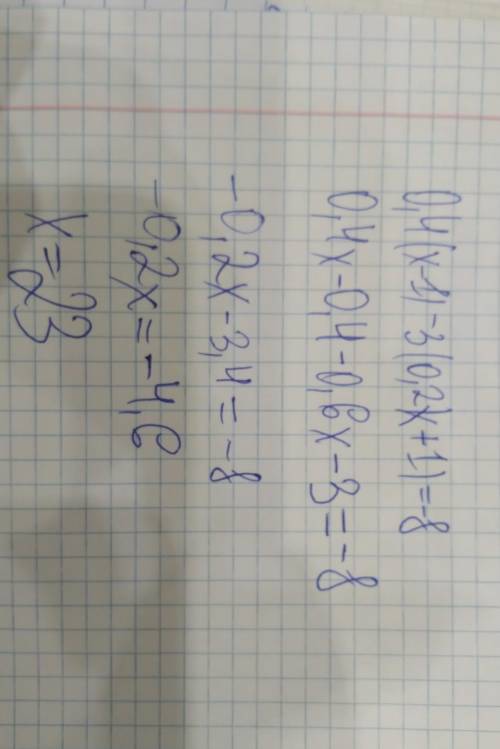 0,4(x-1)-3(0,2x+1)=-8
0,4x-0,4-0,6x-3=-8
-0,2x-3,4=-8
-0,2x=-4,6
x=23